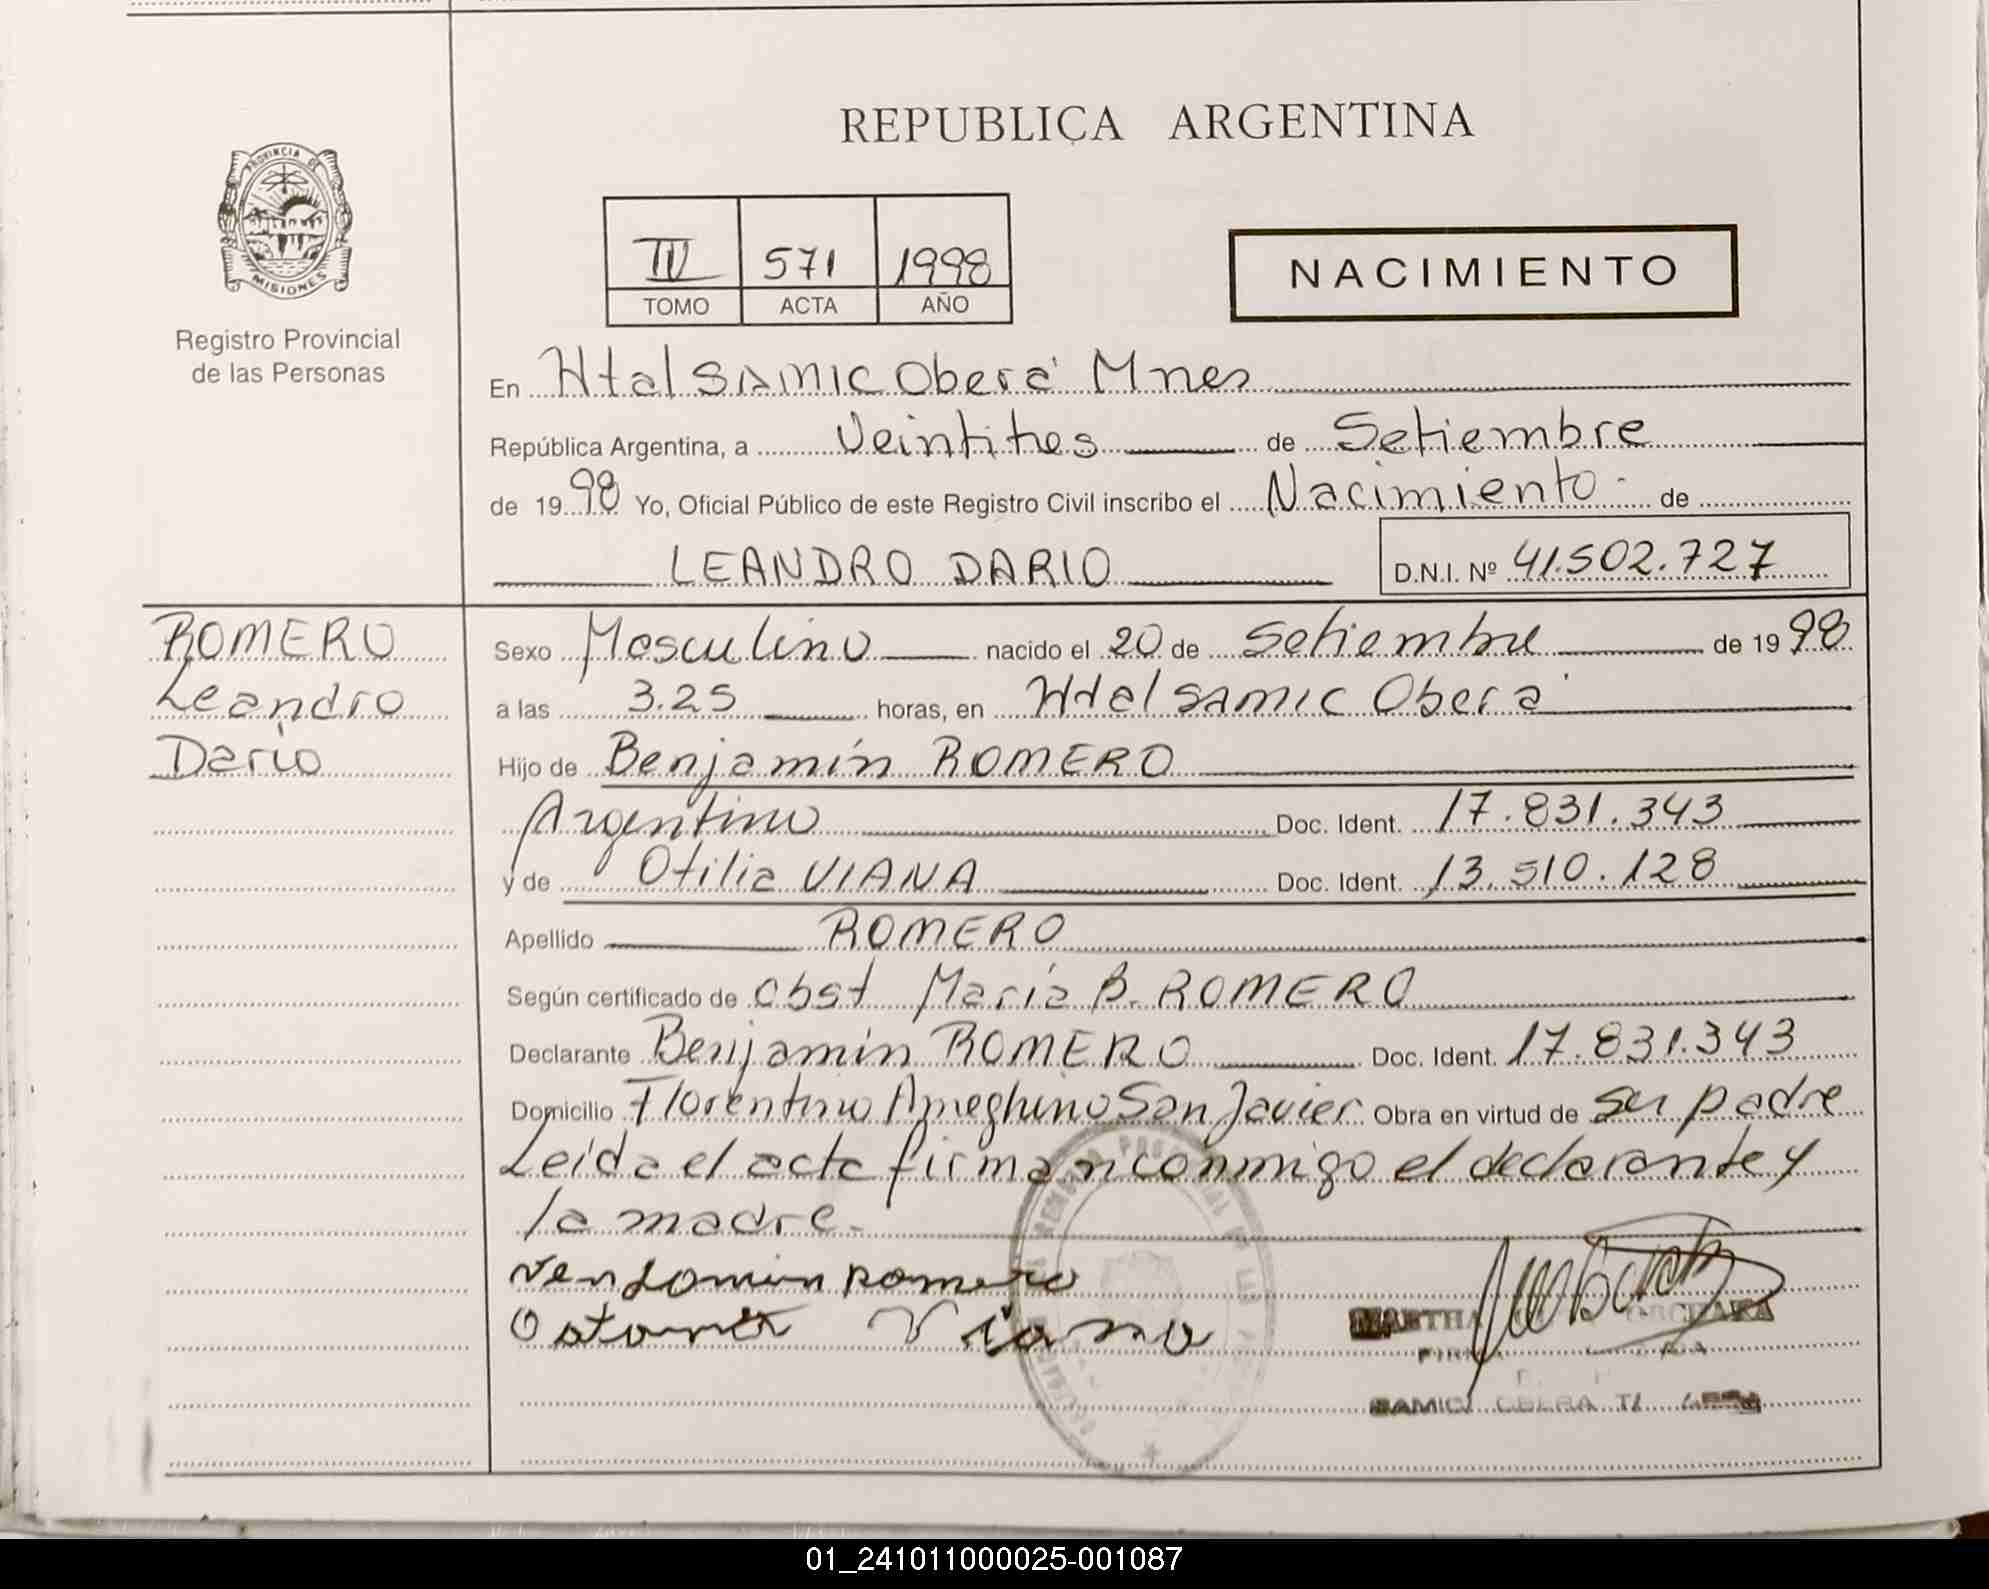 REPUBLICA ARGENTINA
PROVINCIA DE
MISIONES
Registro Provincial
de las Personas
IV 571 1998
TOMO ACTA AÑO
NACIMIENTO
En Htal SAMIC Oberá Mnes
República Argentina, a Veintitres de Setiembre
de 1998 Yo, Oficial Público de este Registro Civil inscribo el Nacimiento de
LEANDRO DARIO D.N.I. Nº 41.502.727
ROMERO
Leandro
Dario
Sexo Masculino nacido el 20 de Setiembre de 1998
a las 3.25 horas, en Htal SAMIC Oberá
Hijo de Benjamín ROMERO
Argentino Doc. Ident. 17.831.343
y de Otilia VIANA Doc. Ident. 13.510.128
Apellido ROMERO
Según certificado de Obst María B. ROMERO
Declarante Benjamín ROMERO Doc. Ident. 17.831.343
Domicilio Florentino Ameghino San Javier Obra en virtud de su padre
Leída el acta firman conmigo el declarante y
la madre.
romero
MARTHA
SAMIC OBERA
01_241011000025-001087